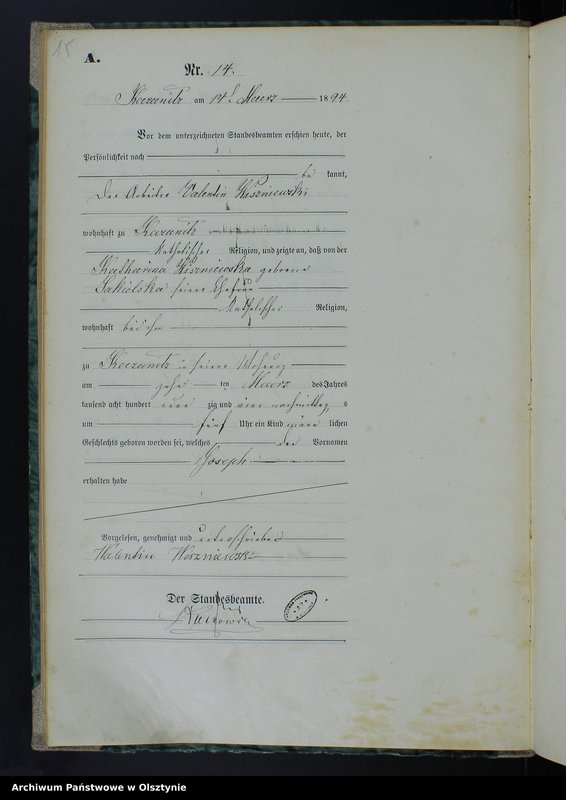 15
A.
Nr. 14.
am 14t Maerz 1894.
Vor dem unterzeichneten Standesbeamten erschien heute, der
Persönlichkeit nach
be kannt,
Der Arbeiter Valentin
wohnhaft zu
katholischer Religion, und zeigte an, daß von der
Katharina geborene
seiner Ehefrau
katholischer Religion,
wohnhaft bei ihm
zu in seiner Wohnung
am zehn ten Maerz des Jahres
tausend acht hundert neun zig und vier nachmittag s
um fünf Uhr ein Kind männ lichen
Geschlechts geboren worden sei, welches den Vornamen
Joseph
erhalten habe
Vorgelesen, genehmigt und unterschrieben
Walentin
Der Standesbeamte.
Archiwum Państwowe w Olsztynie